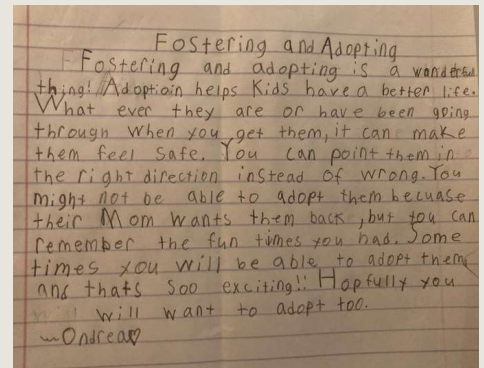 Fostering and Adopting
Fostering and adopting is a wonderful
thing! Adoptioin helps Kids have a better life.
What ever they are or have been going
through when you get them, it can make
them feel safe. You can point them in
the right direction instead of wrong. You
might not be able to adopt them becuase
their Mom wants them back, but you can
remember the fun times you had. Some
times you will be able to adopt them
and thats Soo exciting!! Hopfully you
will want to adopt too.
~Ondrea♡